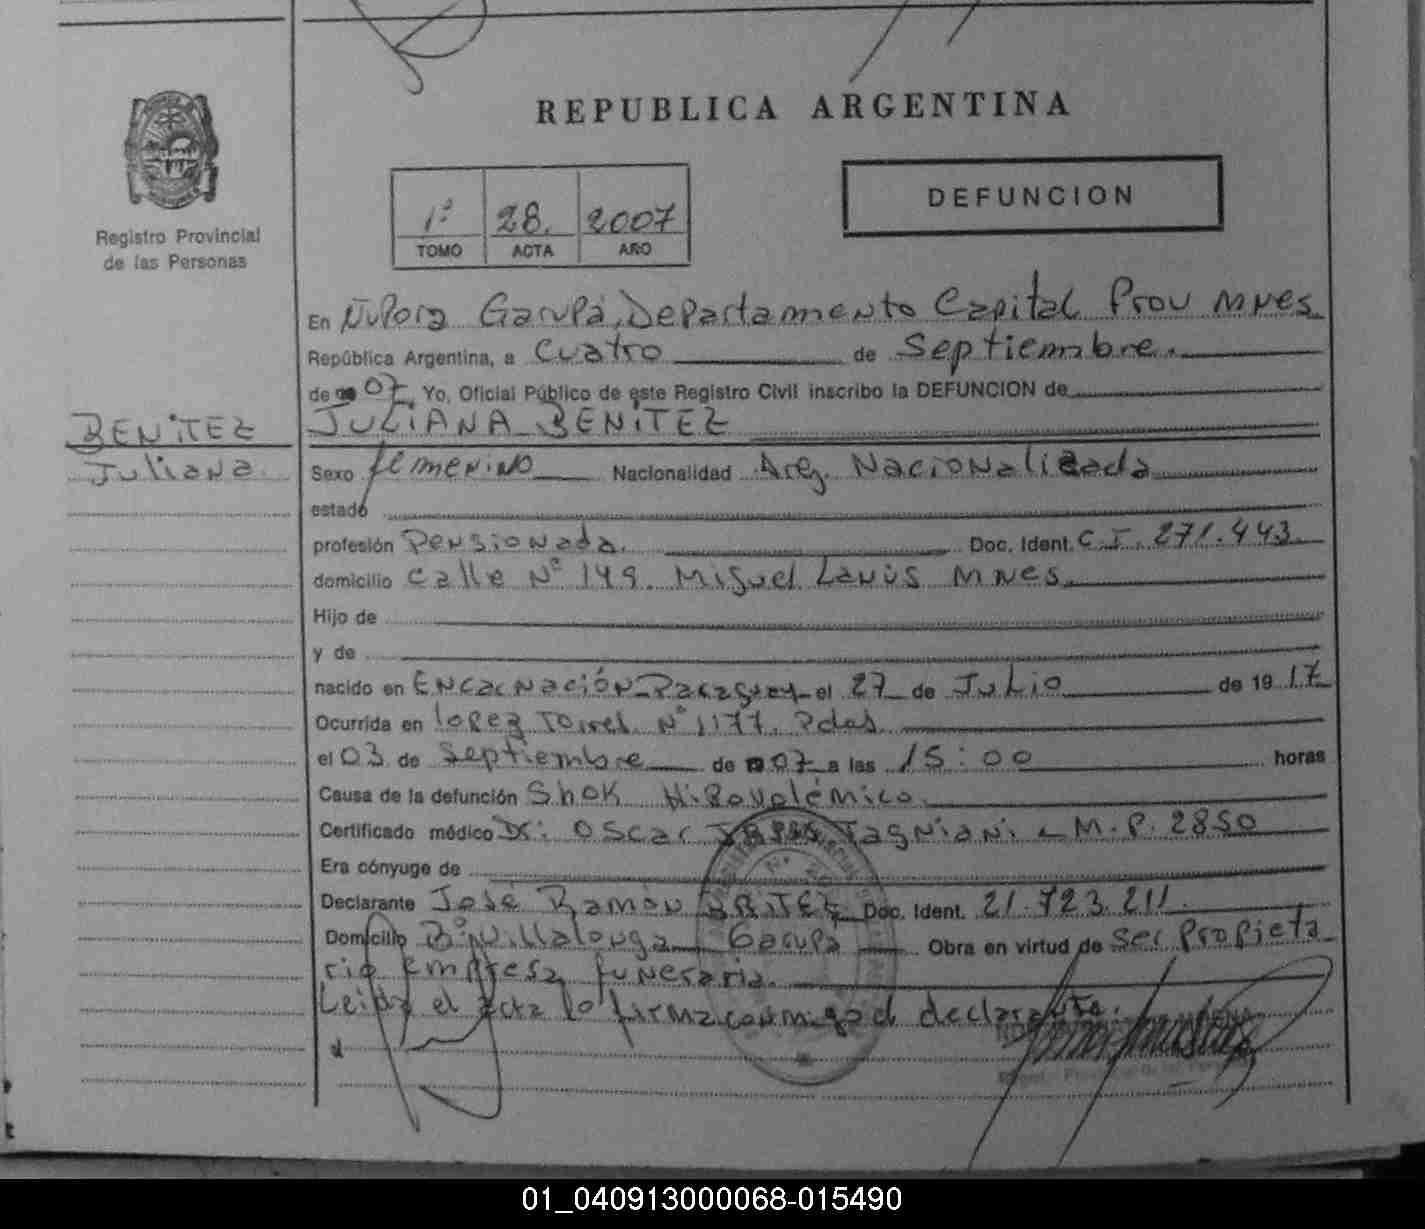 REPUBLICA ARGENTINA
Registro Provincial
de las Personas
1º 28. 2007
TOMO ACTA AÑO
DEFUNCION
En Ñu Porá Garupá, Departamento Capital Prov MNES
República Argentina, a Cuatro de Septiembre.
de 07, Yo, Oficial Público de este Registro Civil inscribo la DEFUNCION de
JULIANA BENITEZ
BENITEZ
Juliana.
Sexo femenino Nacionalidad Arg. Nacionalizada
estado
profesión Pensionada. Doc. Ident. C.I. 271.443.
domicilio Calle Nº 149. Miguel Lanús MNES.
Hijo de
y de
nacido en Encarnación-Paraguay el 27 de Julio de 19 17
Ocurrida en Lopez Torres Nº 1177. Pdas.
el 03 de Septiembre de 07 a las 15:00 horas
Causa de la defunción Shok Hipovolémico.
Certificado médico Dr: Oscar Tagniani - M.P. 2850
Era cónyuge de
Declarante José Ramón BRITEZ Doc. Ident. 21.723.211.
Domicilio Bº Villalonga Garupá Obra en virtud de ser propieta
rio Empresa funeraria.
Leida el acta lo firma conmigo el declarante.
01_040913000068-015490